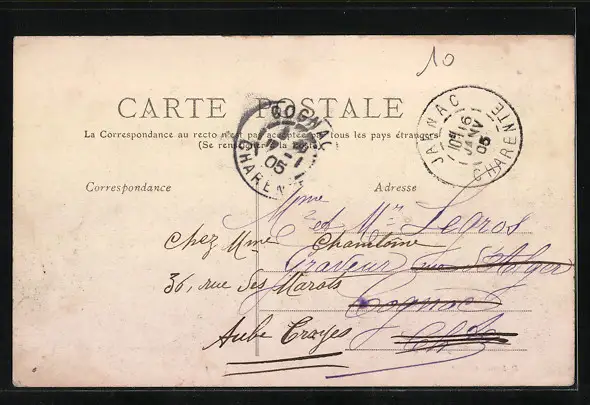 10
CARTE POSTALE
La Correspondance au recto n'est pas acceptée par tous les pays étrangers
(Se renseigner à la poste)
COGNAC
CHARENTE
05
JARNAC
16
JANV
05
CHARENTE
Correspondance
Adresse
Mme
et Mr Legros
Chez Mme Chantoine
Graveur rue d'Alger
36, rue des Marots
Cognac
Aube Troyes